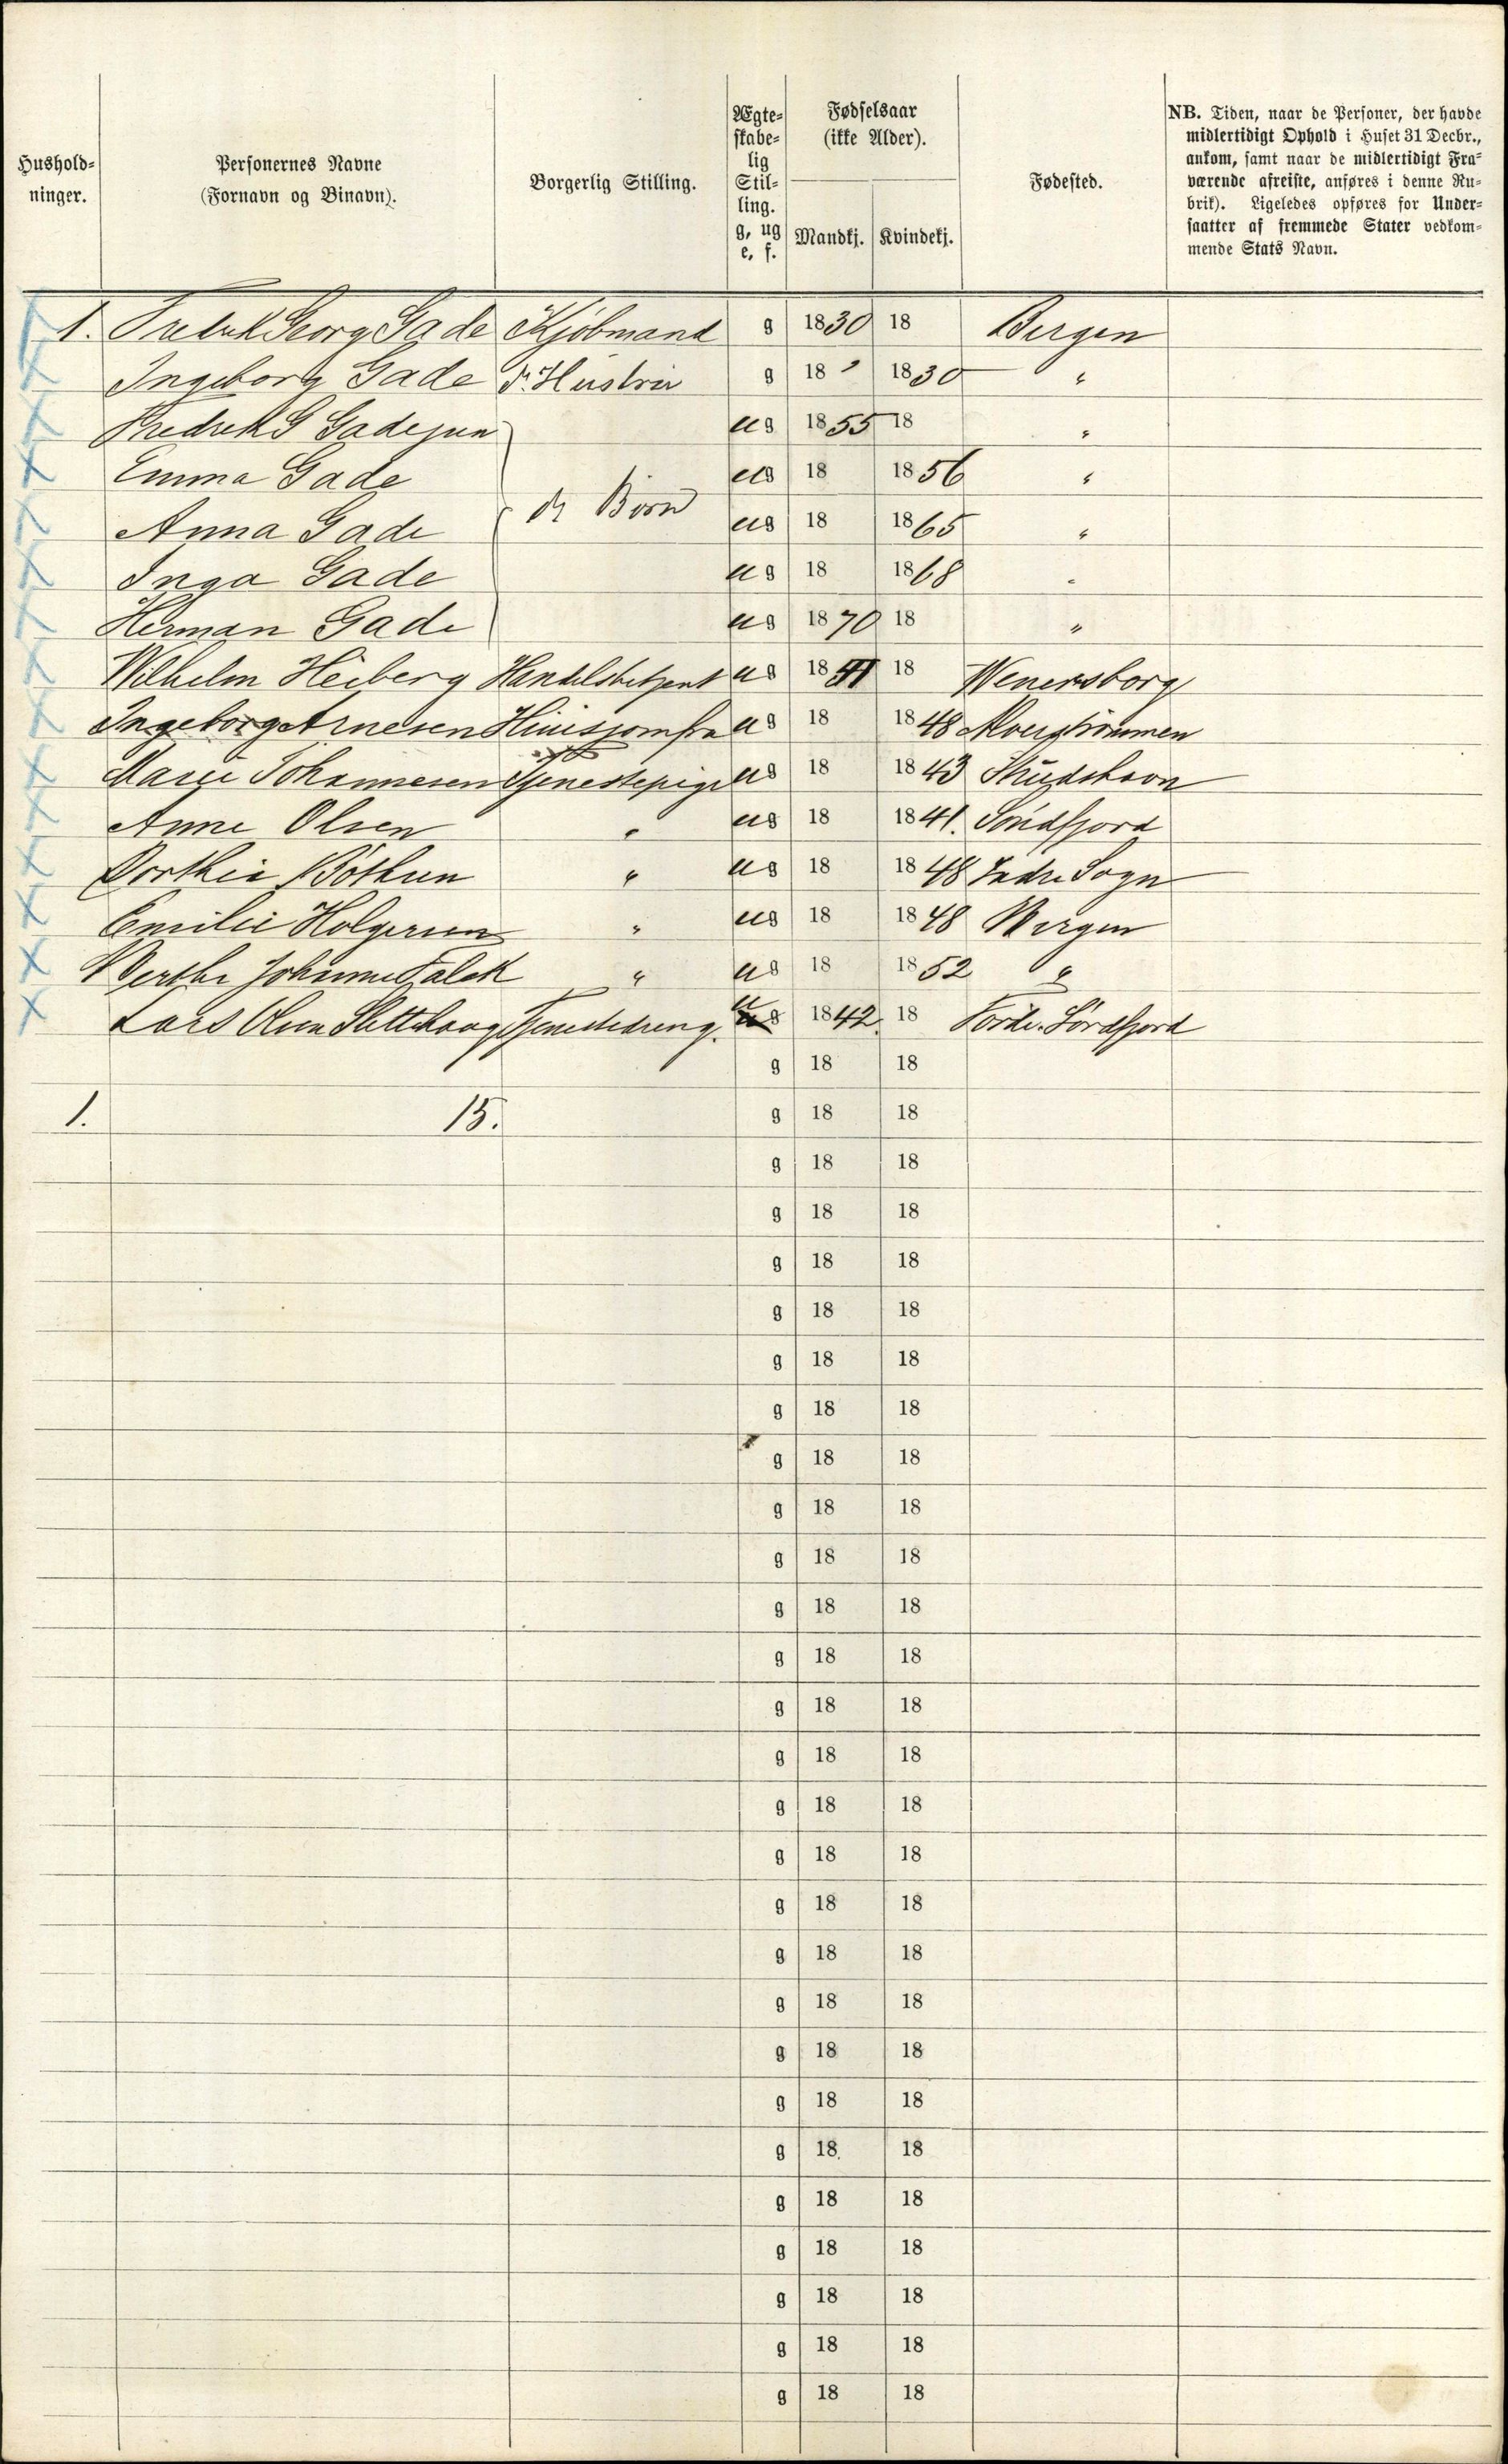 Hushold-
ninger.
Personernes Navne
(Fornavn og Binavn).
Borgerlig Stilling.
Ægte-
skabe-
lig
Stil-
ling.
g, ug
e, f.
Fødselsaar
(ikke Alder).
Mandkj. Kvindekj.
Fødested.
NB. Tiden, naar de Personer, der havde
midlertidigt Ophold i Huset 31 Decbr.,
ankom, samt naar de midlertidigt Fra-
værende afreiste, anføres i denne Ru-
brik). Ligeledes opføres for Under-
saatter af fremmede Stater vedkom-
mende Stats Navn.
1. Fredrik Georg Gade Kjøbmand g 1830 18 Bergen
Ingeborg Gade d. Hustru g 18 " 1830 "
Fredrik G Gade jun ug 1855 18 "
Emma Gade ug 18 1856 "
Anna Gade ds Børn ug 18 1865 "
Inga Gade ug 18 1868 "
Herman Gade ug 1870 18 "
Wilhelm Heiberg Handelsbetjent ug 1841 18 Wenersborg
Ingeborg Arnesen Huusjomfru ug 18 1848 Alverstrømmen
Marie Johannesen Tjenestepige ug 18 1843 Skudshavn
Anne Olsen " ug 18 1841. Søndfjord
Dorthea Bøthun " ug 18 1848 Indre Sogn
Emilie Holgersen " ug 18 1848 Bergen
Berthe Johanne Falck " ug 18 1852 "
Lars Olsen Slettehaug Tjenestedreng. ug 1842. 18 Førde. Søndfjord
g 18 18
1. 15. g 18 18
g 18 18
g 18 18
g 18 18
g 18 18
g 18 18
g 18 18
g 18 18
g 18 18
g 18 18
g 18 18
g 18 18
g 18 18
g 18 18
g 18 18
g 18 18
g 18 18
g 18 18
g 18 18
g 18 18
g 18 18
g 18 18
g 18 18
g 18 18
g 18 18
g 18 18
g 18 18